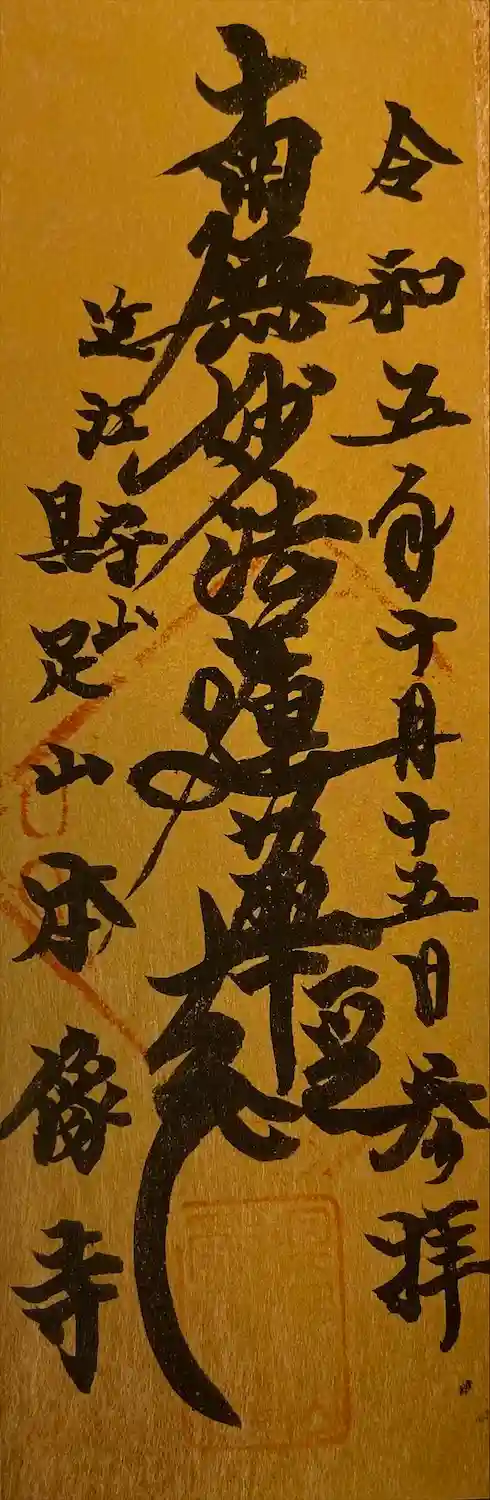 令和五年十月十五日参拝
南無妙法蓮華経
近江野
具足山本像寺